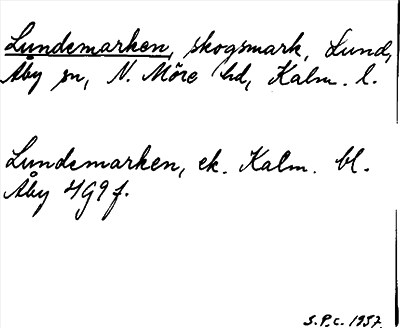 Lundemarken, skogsmark, Lund,
Åby sn, N. Möre hd, Kalm. l.
Lundemarken, ek. Kalm. bl.
Åby 4G9f.
S.P.C. 1937.